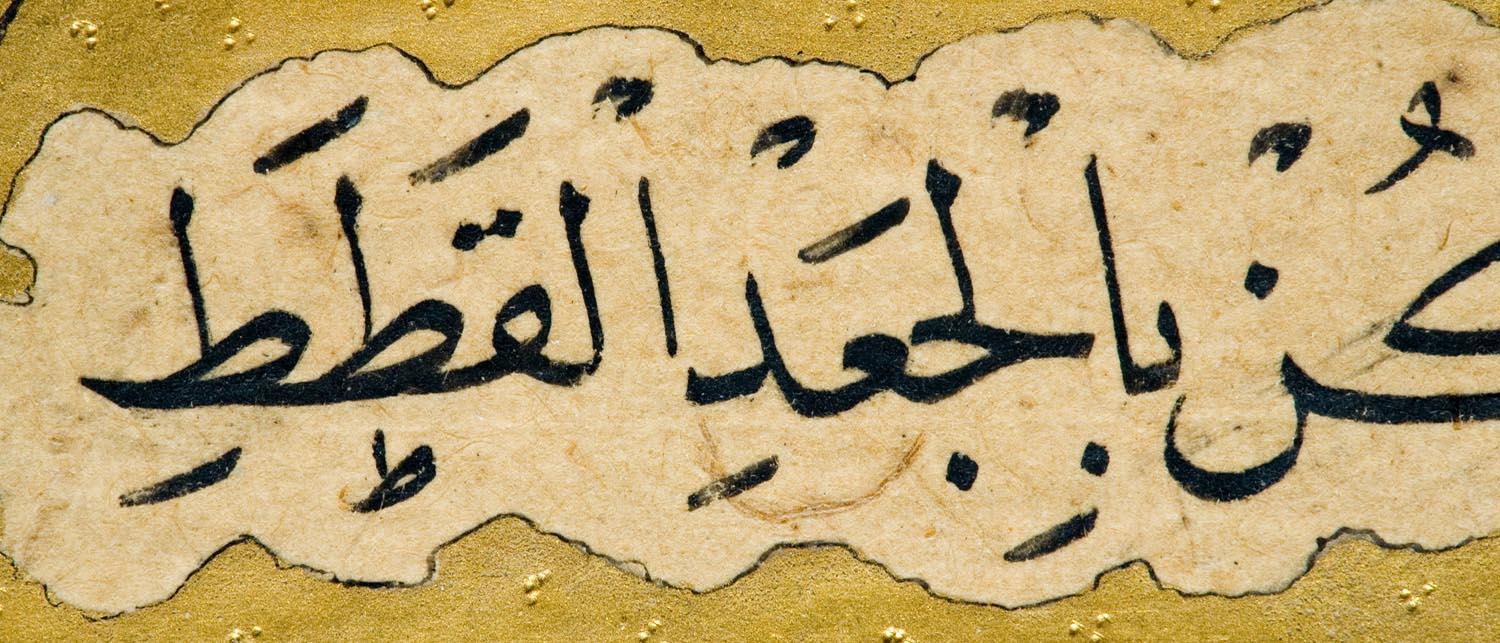 كُنْ بِالْجَعْدِ الْقَطَطِ